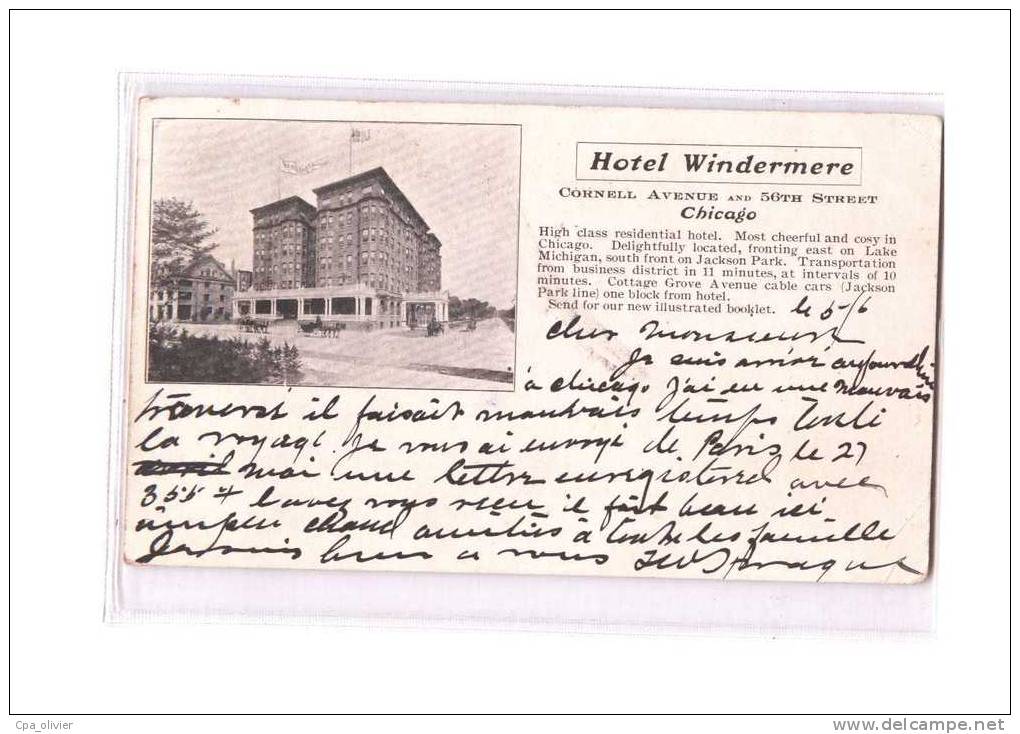 Hotel Windermere
Cornell Avenue and 56th Street
Chicago
High class residential hotel. Most cheerful and cosy in
Chicago. Delightfully located, fronting east on Lake
Michigan, south front on Jackson Park. Transportation
from business district in 11 minutes, at intervals of 10
minutes. Cottage Grove Avenue cable cars (Jackson
Park line) one block from hotel.
Send for our new illustrated booklet.
le 5/6
cher Monsieur
Je suis arrivé aujourd'hui
a chicago J'ai eu une mauvais
traversé il faisait mauvais temps toute
la voyage. Je vous ai envoyé de Paris le 27
mai une lettre enregistered avec
355 l'avez vous recu il fait beau ici
un peu chaud amitiés à toute les famille
Je suis bien a vous
Cpa_olivier
www.delcampe.net